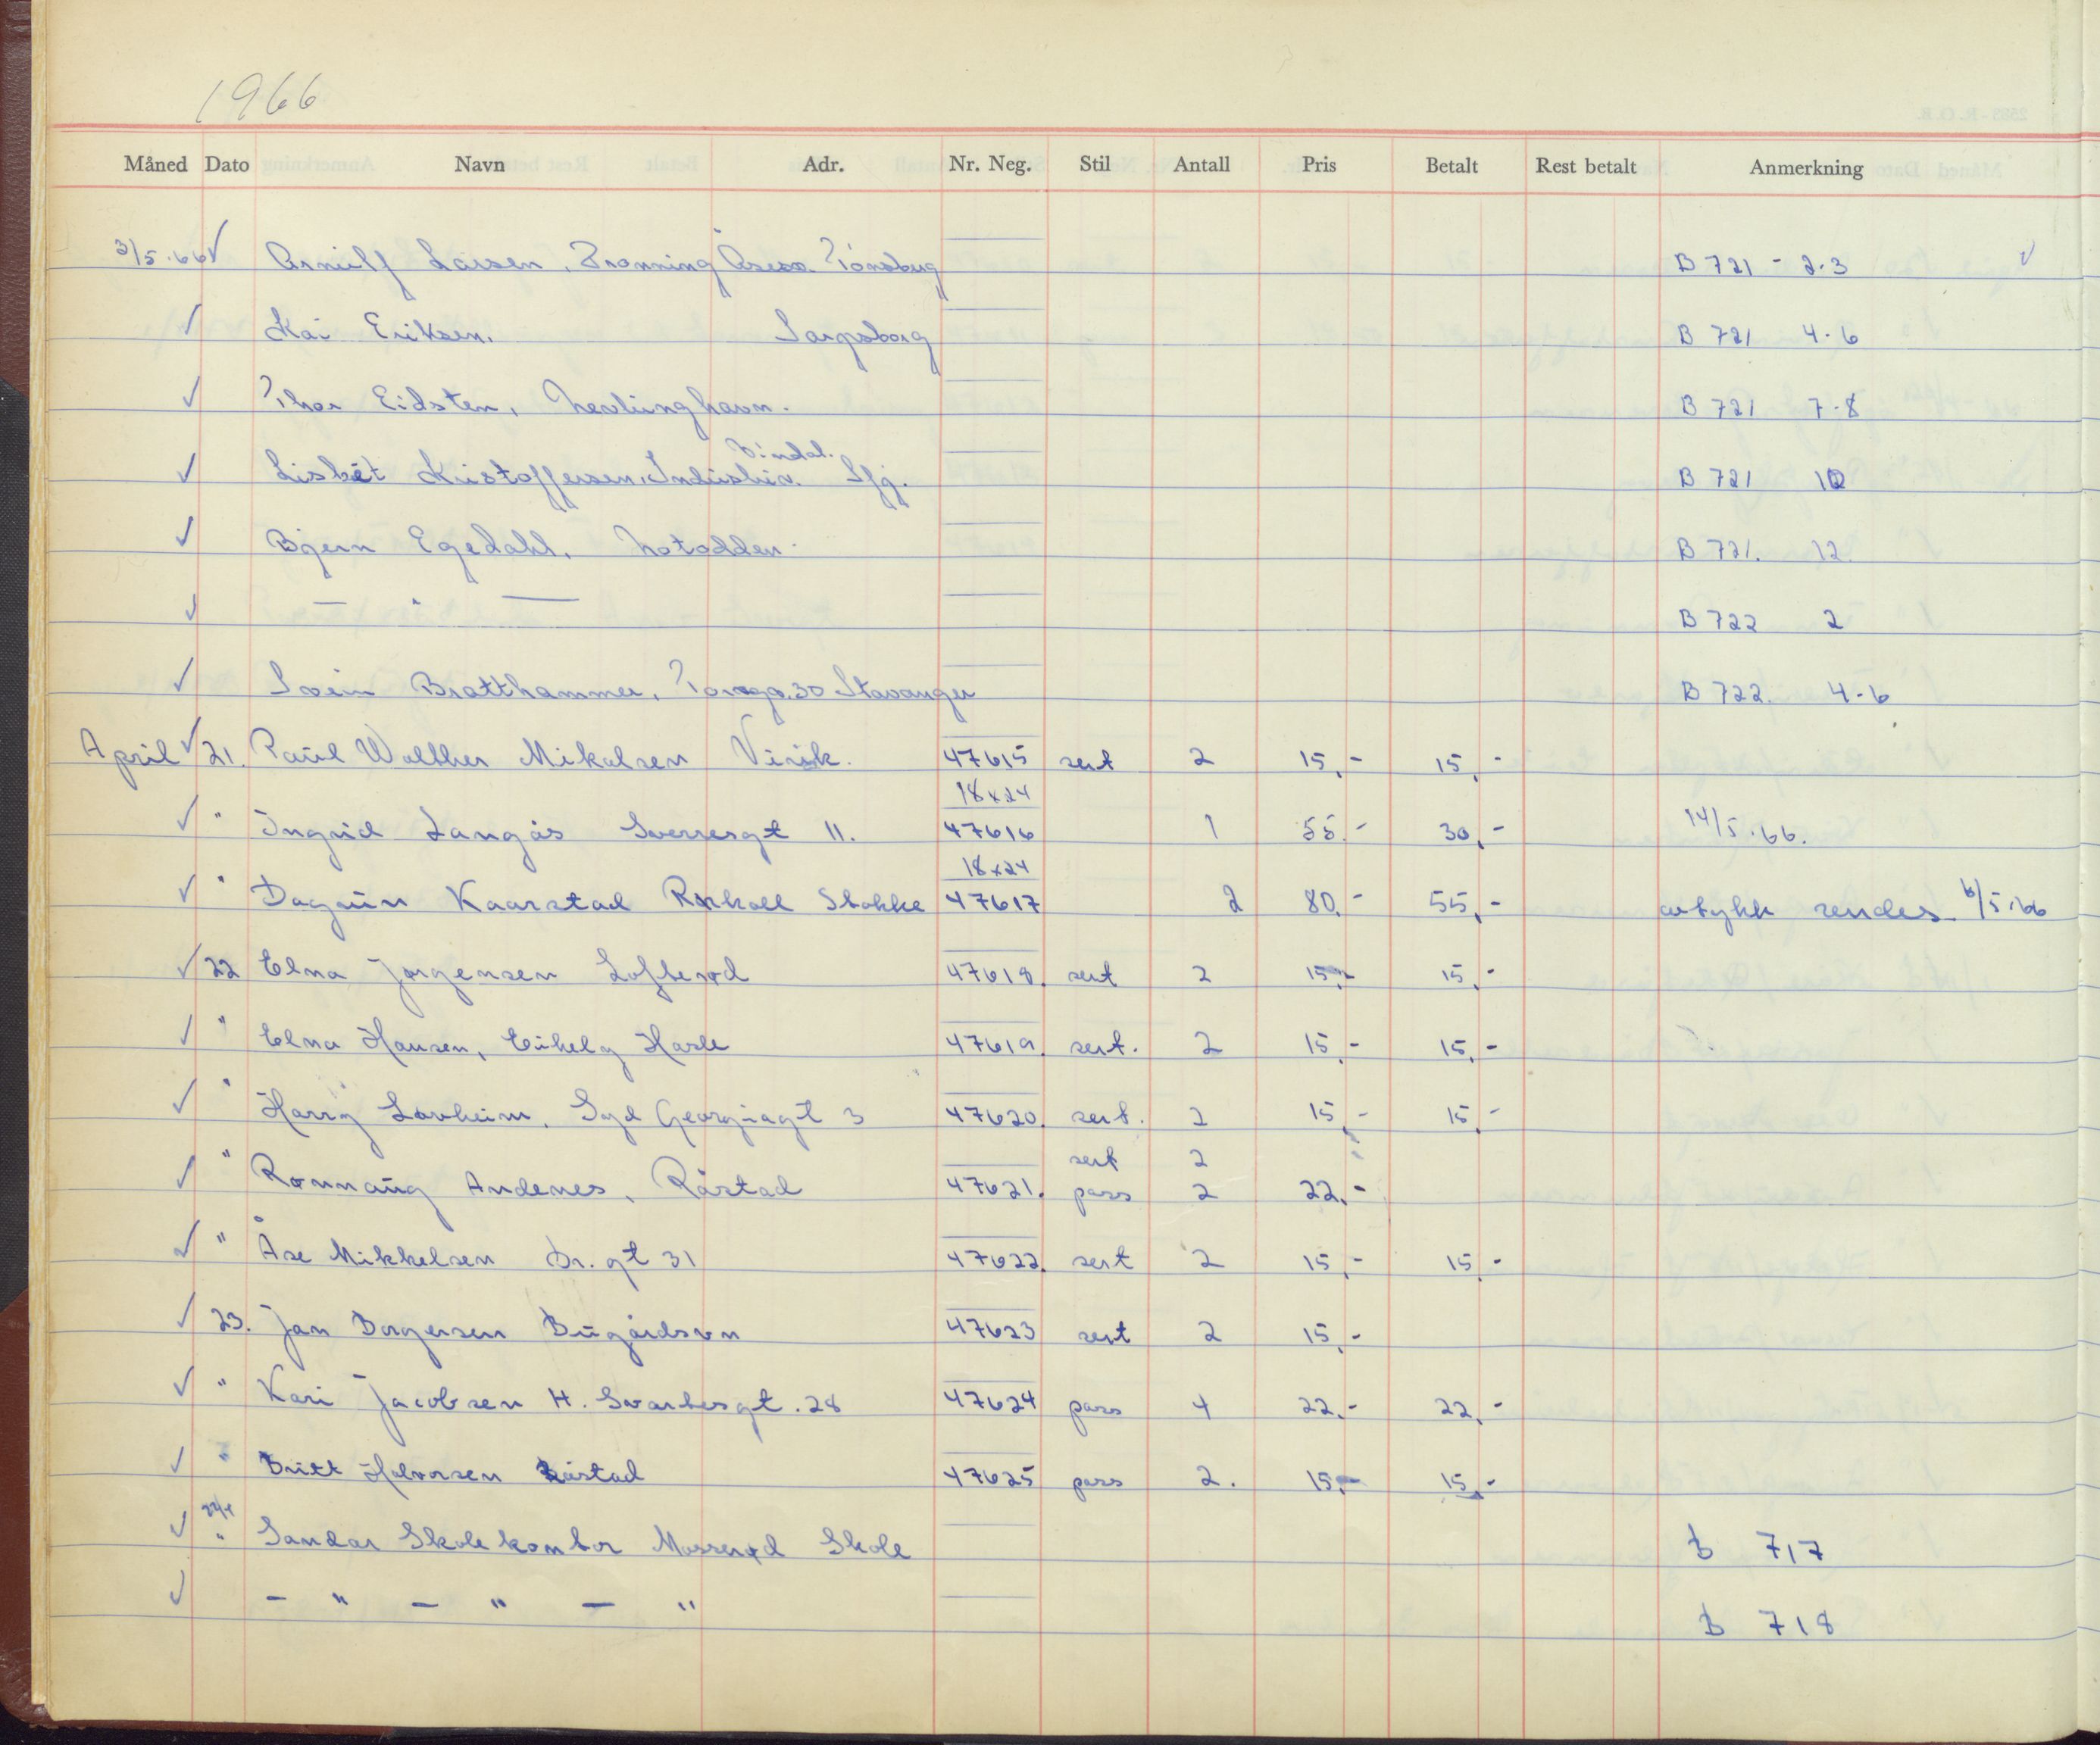 1966
Måned Dato Navn Adr. Nr. Neg. Stil Antall Pris Betalt Rest betalt Anmerkning
3/5.66 ✓ Arnulf Larsen, Dronning Åsesv. Tønsberg B 721 - 2.3 ✓
✓ Kai Eriksen. Sarpsborg B 721 4-6
✓ Thor Eidsten, Nevlunghavn. B 721 7-8
Vindal.
✓ Lisbet Kristoffersen, Industriv. Sfj. B 721 10
✓ Bjørn Egedahl, Notodden. B 721. 12
✓ — " — B 722 2
✓ Svein Bratthammer, 30 Stavanger B 722. 4-6
April ✓ 21. Paul Walther Mikalsen Virik. 47615 sert 2 15,- 15,-
18x24
✓ " Ingrid Langås Sverresgt 11. 47616 1 55.- 30,- 14/5.66.
18x24
✓ " Dagrun Kaarstad Stokke 47617 2 80.- 55,- avtykk sendes 6/5.66
✓ 22 Elna Jørgensen Lofterød 47618. sert 2 15,- 15,-
✓ " Elna Hansen, Eikelg Hasle 47619. sert. 2 15,- 15,-
✓ " Harry Løvheim, Syd Georgiagt 3 47620. sert. 2 15,- 15,-
sert 2
✓ " Rønnaug Andenes, Råstad 47621. pass 2 22.-
✓ " Åse Mikkelsen Dr. gt 31 47622. sert 2 15,- 15,-
✓ 23. Jan Borgersen Bugårdsvn 47623 sert 2 15,-
✓ " Kari Jacobsen H. Svartesgt. 28 47624 pass 4 22.- 22,-
✓ " Britt Halvorsen Råstad 47625 pass 2. 15,- 15,-
✓ " Sandar Skolekontor Mosserød Skole B 717
✓ - " - " - " B 718